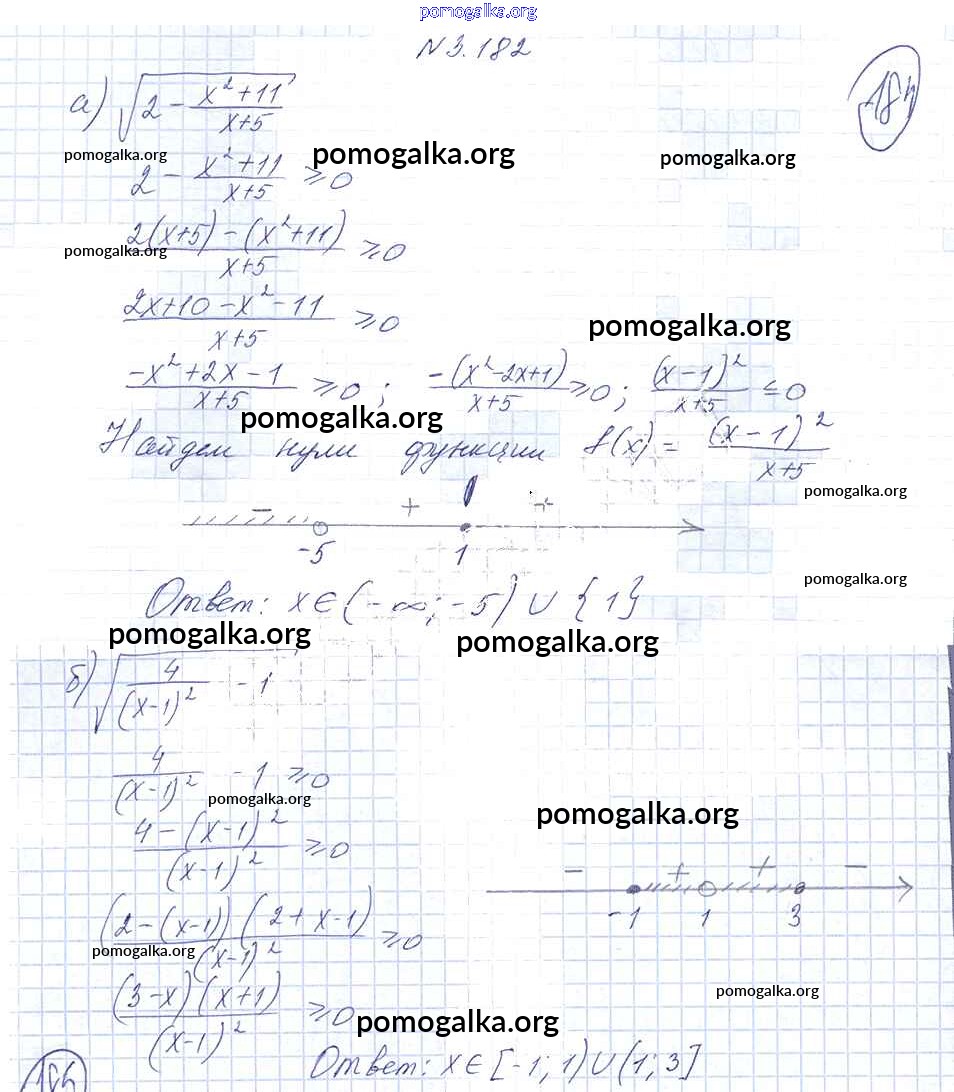 pomogalka.org
N 3.182
184
а) √(2 - (x²+11)/(x+5))
pomogalka.org pomogalka.org pomogalka.org
2 - (x²+11)/(x+5) ≥ 0
(2(x+5) - (x²+11))/(x+5) ≥ 0
pomogalka.org
(2x+10-x²-11)/(x+5) ≥ 0
pomogalka.org
(-x²+2x-1)/(x+5) ≥ 0; (-(x²-2x+1))/(x+5) ≥ 0; (x-1)²/(x+5) ≤ 0
pomogalka.org
Найдем нули функции f(x) = (x-1)²/(x+5)
pomogalka.org
- + +
-5 1
pomogalka.org
Ответ: x∈(-∞; -5) ∪ {1}
pomogalka.org pomogalka.org
б) √(4/(x-1)² - 1)
4/(x-1)² - 1 ≥ 0
pomogalka.org pomogalka.org
(4-(x-1)²)/(x-1)² ≥ 0
- + + -
-1 1 3
((2-(x-1))(2+x-1))/(x-1)² ≥ 0
pomogalka.org
((3-x)(x+1))/(x-1)² ≥ 0
pomogalka.org
pomogalka.org
Ответ: x∈[-1; 1)∪(1; 3]